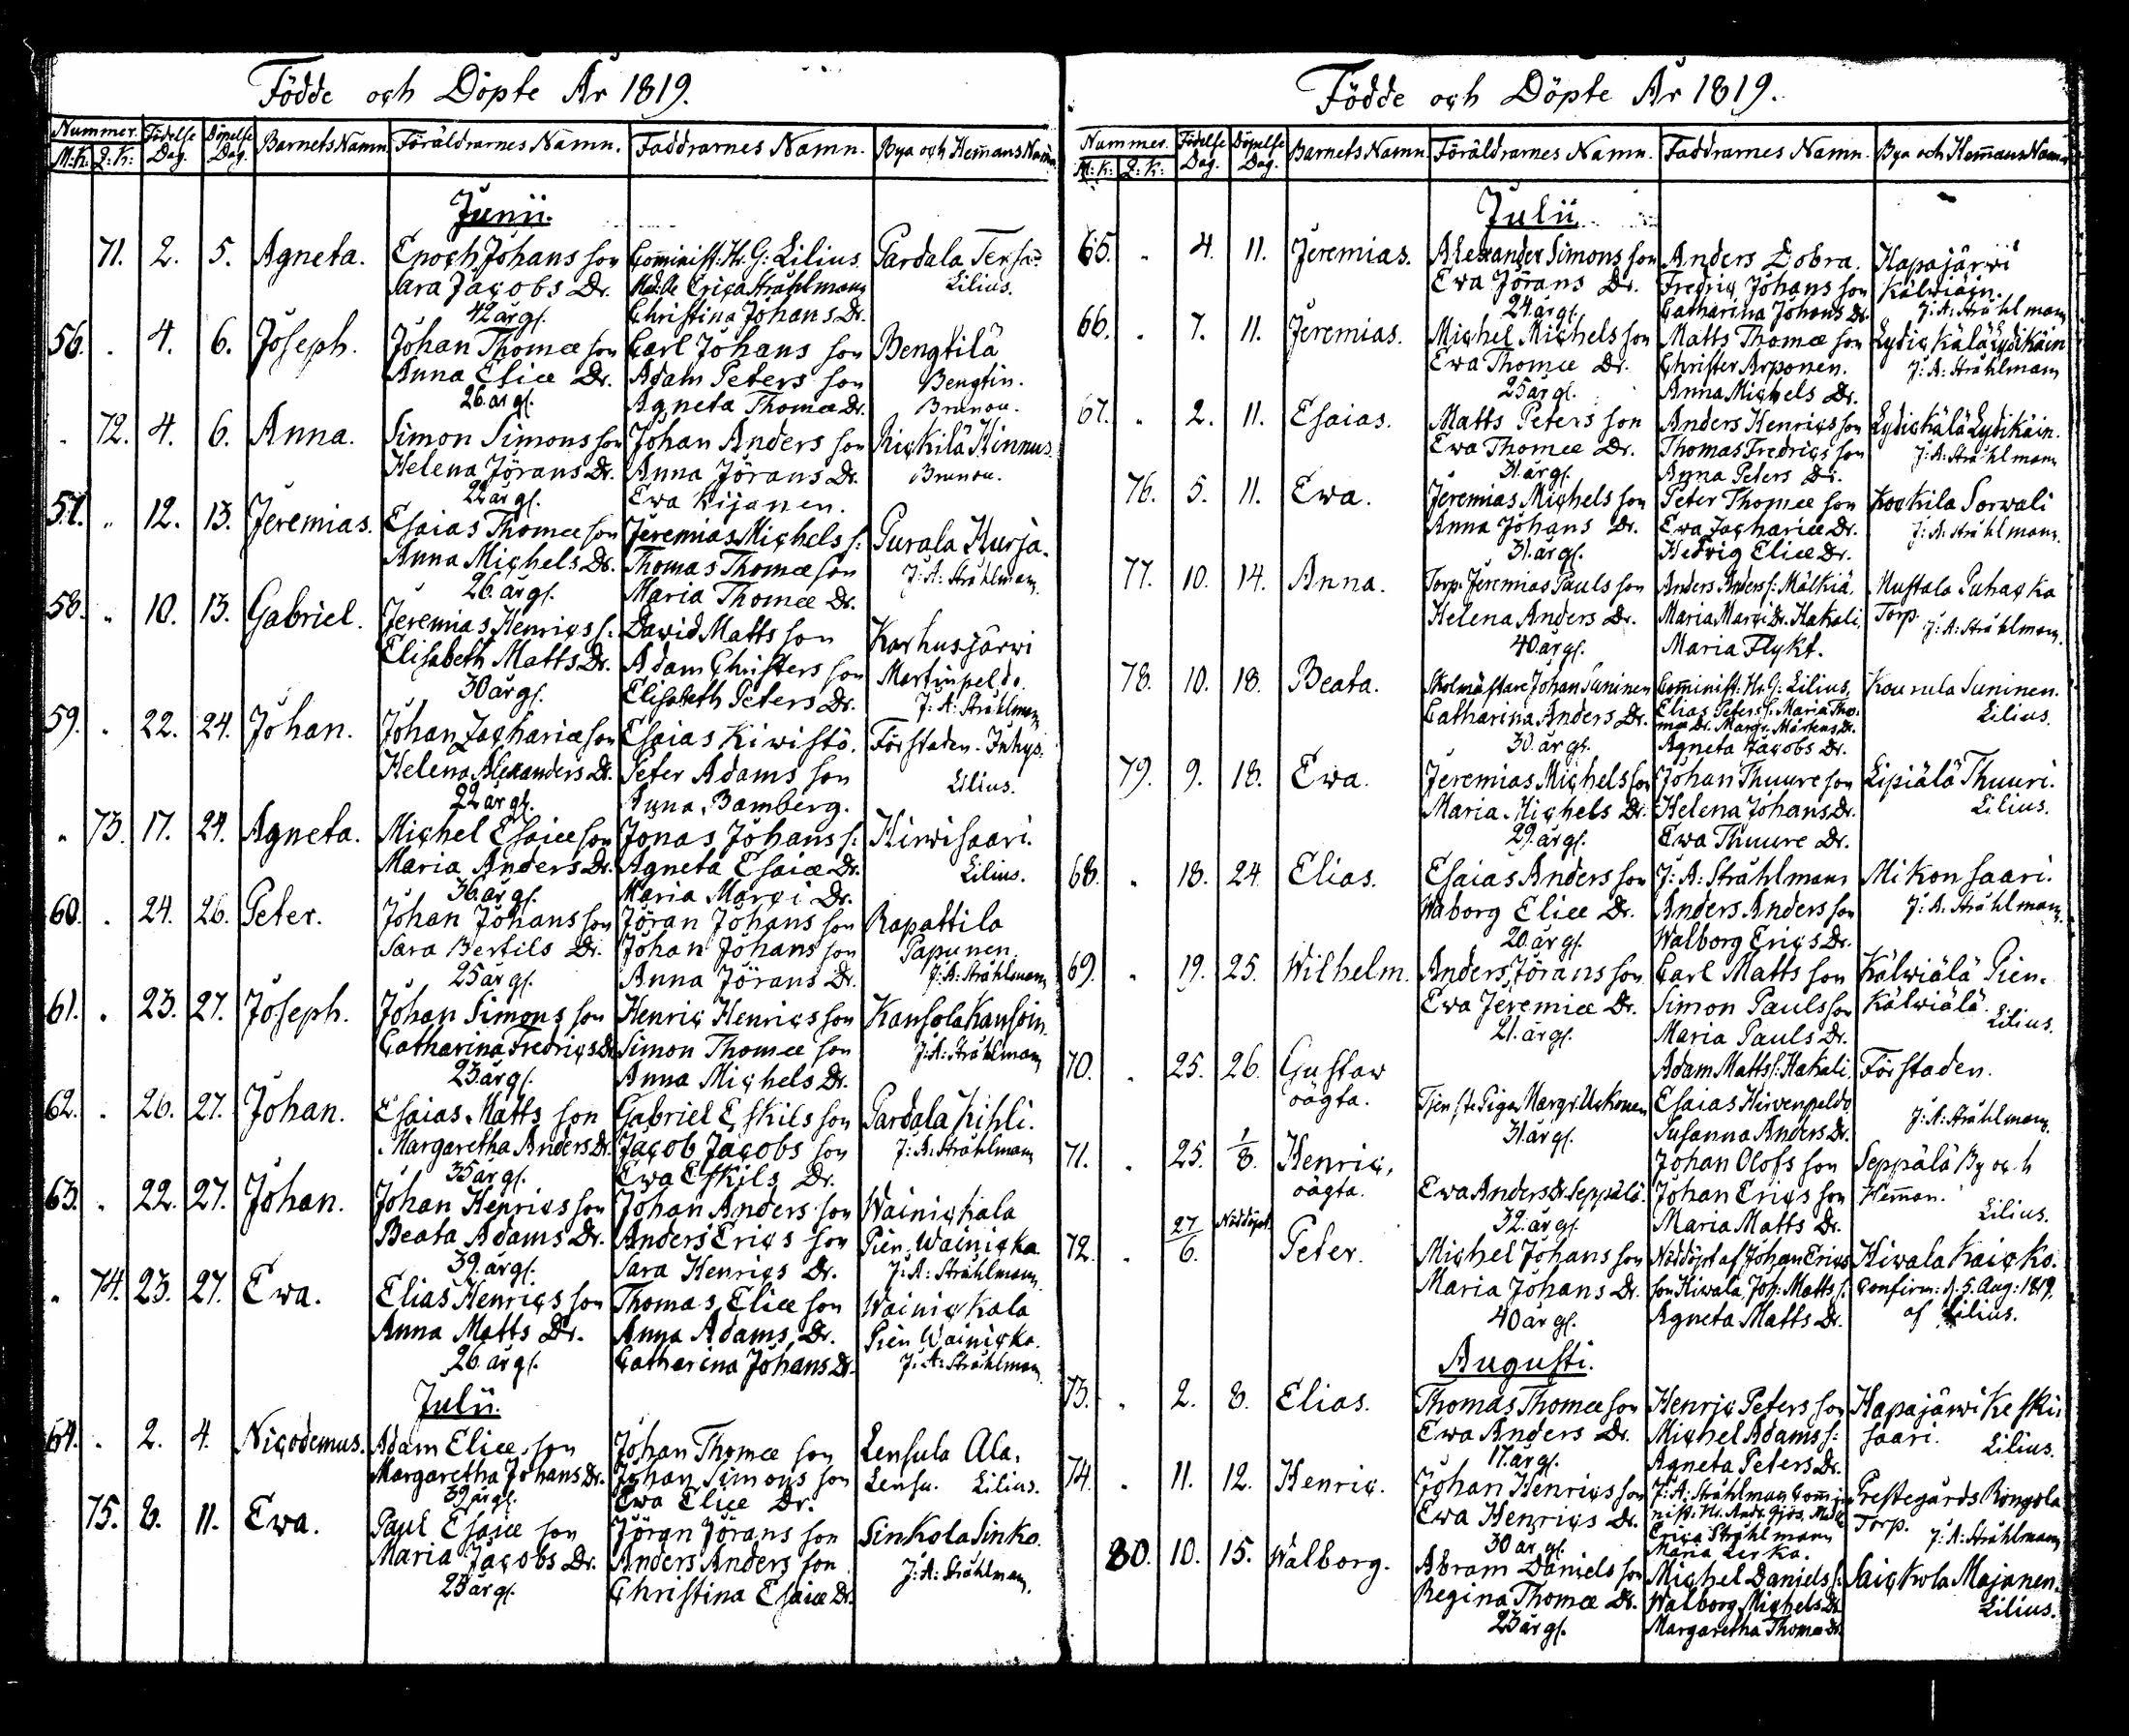 Födde och Döpte År 1819.
Nummer. Födelse Dag. Döpelse Dag. Barnets Namn. Föräldrarnes Namn. Faddrarnes Namn. Bya och Hem̄ans Nam̄n
M: K: Q: K:
Junii.
71. 2. 5. Agneta. Enoch Johans son Com̄inist: Hr G: Lilius. Pardala Tersa:
Sara Jacobs Dr. Mad:lle Erica Stråhlmann Lilius.
42 år gl. Christina Johans Dr.
56. . 4. 6. Joseph. Johan Thomæ son Carl Johans son Bengtilä
Anna Eliæ Dr. Adam Peters son Bengtin.
26. år gl. Agneta Thomæ Dr. Brunou.
. 72. 4. 6. Anna. Simon Simons son Johan Anders son Kickilä Hinnus.
Helena Jörans Dr. Anna Jörans Dr. Brunou.
22 år gl. Ewa Kijanen.
57. " 12. 13. Jeremias. Esaias Thomæ son Jeremias Michels s: Purala Hurja.
Anna Michels Dr. Thomas Thomæ son J: A: Stråhlmann.
26. år gl. Maria Thomæ Dr.
58. " 10. 13. Gabriel. Jeremias Henrics s: David Matts son Karhusjärwi
Elisabeth Matts Dr. Adam Christers son Martinpeldo.
30 år gl. Elisabeth Peters Dr. J: A: Stråhlmann
59. . 22. 24. Johan. Johan Zachariæ son Esaias Kiwistö. Förstaden. Inhys:
Helena Alexanders Dr. Peter Adams son Lilius.
22 år gl. Anna Bamberg.
" 73. 17. 24. Agneta. Michel Esaiæ son Jonas Johans s: Hirwisaari.
Maria Anders Dr. Agneta Esaiæ Dr. Lilius.
36. år gl. Maria Marci Dr.
60. . 24. 26. Peter. Johan Johans son Jöran Johans son Rapattila
Sara Bertils Dr. Johan Johans son Papunen.
25 år gl. Anna Jörans Dr. J: A: Stråhlmann
61. . 23. 27. Joseph. Johan Simons son Henric Henrics son Kansola Kansoin.
Catharina Fredrics Dr Simon Thomæ son J: A: Stråhlmann
23 år gl. Anna Michels Dr.
62. . 26. 27. Johan. Esaias Matts son Gabriel Eskils son Pardala Kihli.
Margaretha Anders Dr. Jacob Jacobs son J: A: Stråhlmann
35 år gl. Ewa Eskils Dr.
63. . 22. 27. Johan. Johan Henrics son Johan Anders son Wainickala
Beata Adams Dr. Anders Erics son Pien Wainicka
39. år gl. Sara Henrics Dr. J: A: Stråhlmann
" 74. 23. 27. Ewa. Elias Henrics son Thomas Eliæ son Wainickala
Anna Matts Dr. Anna Adams Dr. Pien Wainicka.
26. år gl. Catharina Johans Dr. J: A: Stråhlmann
Julii.
64. . 2. 4. Nicodemus. Adam Eliæ son Johan Thomæ son Lensula Ala.
Margaretha Johans Dr. Johan Simons son Lensu. Lilius.
39 år gl. Ewa Eliæ Dr.
75. 8. 11. Ewa. Paul Esaiæ son Jöran Jörans son Sinkola Sinko.
Maria Jacobs Dr. Anders Anders son J: A: Stråhlmann.
23 år gl. Christina Esaiæ Dr.
Födde och Döpte År 1819.
Nummer. Födelse Dag. Döpelse Dag. Barnets Namn. Föräldrarnes Namn. Faddrarnes Namn. Bya och Hem̄ans Namn
M: K: Q: K:
Julii
65. " 4. 11. Jeremias. Alexander Simons son Anders Dobra. Hapajärwi
Ewa Jörans Dr. Fredric Johans son Kälwiäin.
24. år gl. Catharina Johans Dr. J: A: Stråhlmann
66. . 7. 11. Jeremias. Michel Michels son Matts Thomæ son Lydickälä Lydikäin
Ewa Thomæ Dr. Christer Arponen. J: A: Stråhlmann
25 år gl. Anna Michels Dr.
67. . 2. 11. Esaias. Matts Peters son Anders Henrics son Lydickälä Lydikäin.
Ewa Thomæ Dr. Thomas Fredrics son J: A: Stråhlmann
31. år gl. Anna Peters Dr.
76. 5. 11. Ewa. Jeremias Michels son Peter Thomæ son Kockila Sorwali
Anna Johans Dr. Ewa Zachariæ Dr. J: A: Stråhlmann.
31. år gl. Hedvig Eliæ Dr.
77. 10. 14. Anna. Torp: Jeremias Pauls son Anders Anders s: Mälkiä. Mustala Puhacka
Helena Anders Dr. Maria Marci Dr. Hakali. Torp. J: A: Stråhlmann.
40 år gl. Maria Flykt.
78. 10. 18. Beata. Skolmästare Johan Suninen Com̄inist: Hr G: Lilius, Kounela Suninen.
Catharina Anders Dr. Elias Peters s: Maria Tho- Lilius.
mæ Dr. Margr. Mårtens Dr.
30. år gl. Agneta Jacobs Dr.
79. 9. 18. Ewa. Jeremias Michels son Johan Thuure son Lipiälä Thuuri.
Maria Michels Dr. Helena Johans Dr. Lilius.
29. år gl. Ewa Thuure Dr.
68. " 18. 24. Elias. Esaias Anders son J: A: Stråhlmann Mikonsaari.
Waborg Eliæ Dr. Anders Anders son J: A: Stråhlmann.
20. år gl. Walborg Erics Dr.
69. " 19. 25. Wilhelm. Anders Jörans son Carl Matts son Kälwiälä Pien-
Ewa Jeremiæ Dr. Simon Pauls son Kälwiälä.
21. år gl. Maria Pauls Dr. Lilius.
70. . 25. 26. Gustaw Adam Matts s: Hakali. Förstaden.
oägta. Tjenste Pigan Margr. Uskonen Esaias Hirvenpeldo
31. år gl. Susanna Anders Dr. J: A: Stråhlmann.
71. . 25. 1/8. Henric, Johan Olofs son Seppälä By och
oägta. Ewa Anders Dr. Seppälä. Johan Erics son Hem̄an.
32. år gl. Maria Matts Dr. Lilius.
72. . 27/6. Nöddöpt. Peter. Michel Johans son Nöddöpt af Johan Erics Hiwala Kaicko.
Maria Johans Dr. son Hiwala, Joh: Matts s: Confirm: d. 5. Aug: 1819.
40 år gl. Agneta Matts Dr. af Lilius.
Augusti.
73. . 2. 8. Elias. Thomas Thomæ son Henric Peters son Hapajärwi Keski-
Ewa Anders Dr. Michel Adams s: saari. Lilius.
17. år gl. Agneta Peters Dr.
74. . 11. 12. Henric. Johan Henrics son J: A: Stråhlman, Com̄i- Prestegårds Rongola
Ewa Henrics Dr. nist: Hr Andr. Gjös, Mad:lle Torp.
Erica Stråhlmann J: A: Stråhlmann
30 år gl. Maria Lerka.
80. 10. 15. Walborg. Abram Daniels son Michel Daniels s: Saickola Majanen.
Regina Thomæ Dr. Walborg Michels Dr. Lilius.
23 år gl. Margaretha Thomæ Dr.